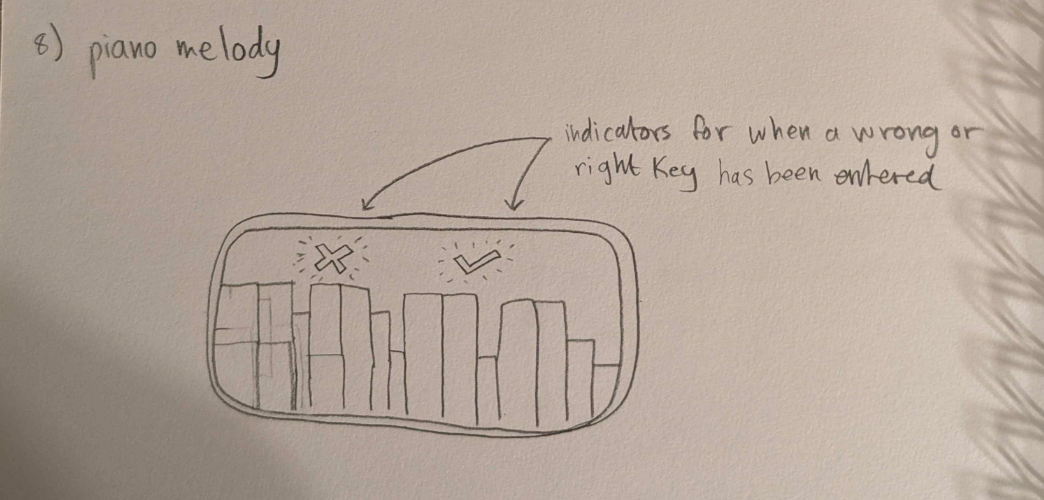 8) piano melody
indicators for when a wrong or
right key has been entered